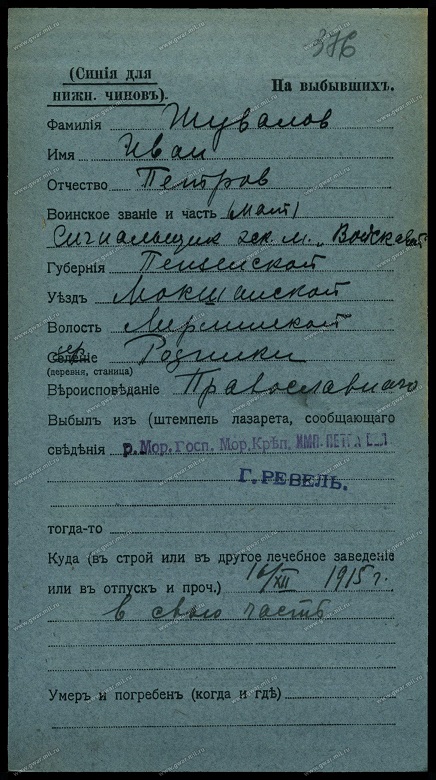 376
(Синія для
нижн. чиновъ).
На выбывшихъ.
Фамилія Шувалов
Имя Иван
Отчество Петров
Воинское званіе и часть (мат)
Сигнальщик эск. м. „Войсковой"
Губернія Пензенской
Уѣздъ Мокшанской
Волость
Селеніе Родники
(деревня, станица)
Вѣроисповѣданіе Православнаго
Выбылъ из (штемпель лазарета, сообщающаго
свѣдѣнія р. Мор. Госп. Мор. Крѣп. ИМП. ПЕТРА ВЕЛ
Г. РЕВЕЛЬ.
тогда-то
Куда (въ строй или въ другое лечебное заведеніе
или въ отпуск и проч.) 16/XII 1915 г.
в свою часть
Умеръ и погребенъ (когда и гдѣ)
www.gwar.mil.ru